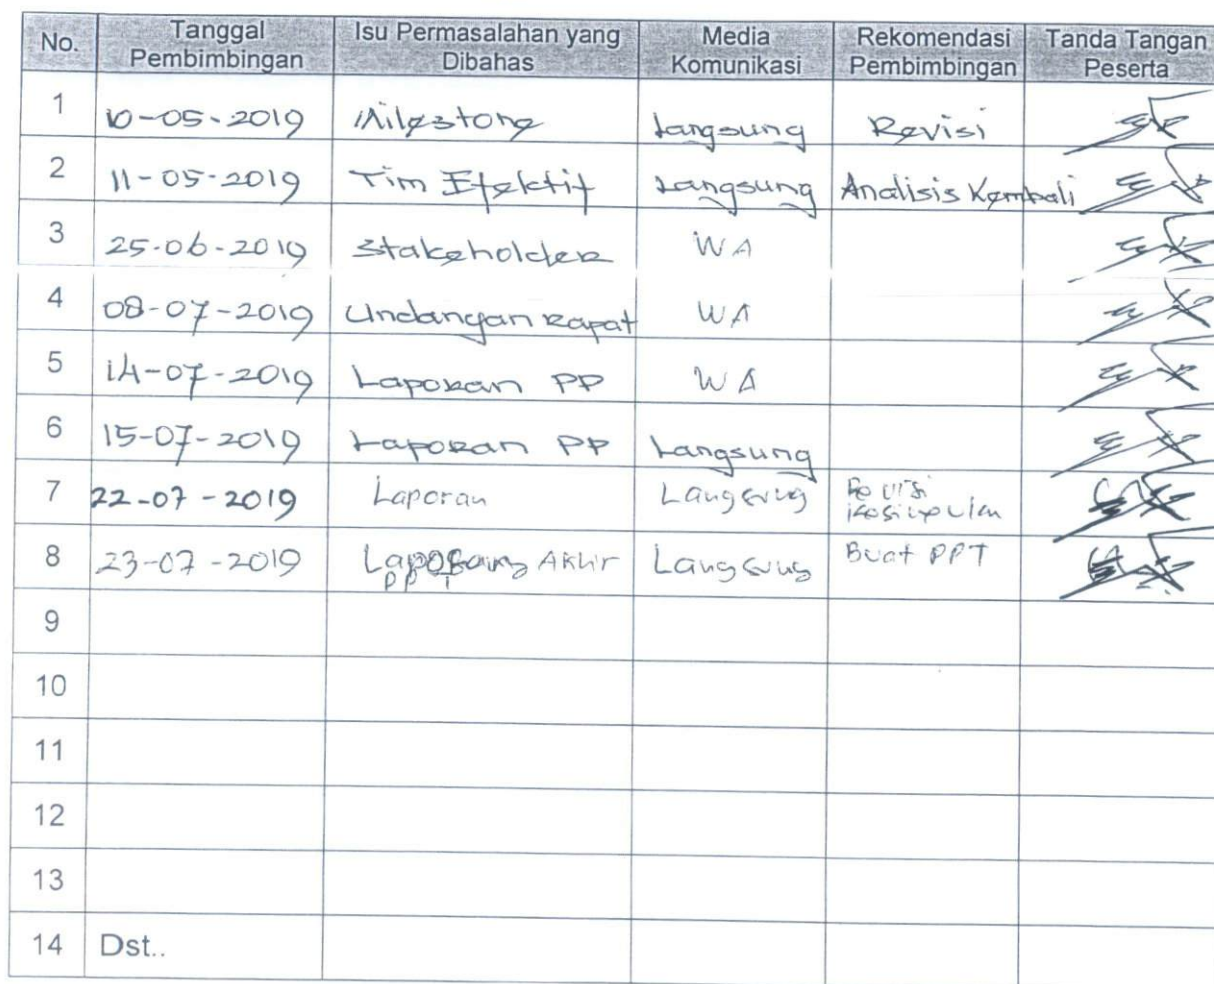 No. Tanggal Pembimbingan Isu Permasalahan yang Dibahas Media Komunikasi Rekomendasi Pembimbingan Tanda Tangan Peserta
1 10-05-2019 Milestone Langsung Revisi
2 11-05-2019 Tim Efektif Langsung Analisis Kembali
3 25-06-2019 Stakeholder WA
4 08-07-2019 Undangan Rapat WA
5 14-07-2019 Laporan PP WA
6 15-07-2019 Laporan PP Langsung
7 22-07-2019 Laporan Langsung Revisi
8 23-07-2019 Akhir Langsung Buat PPT
PPT
9
10
11
12
13
14 Dst..